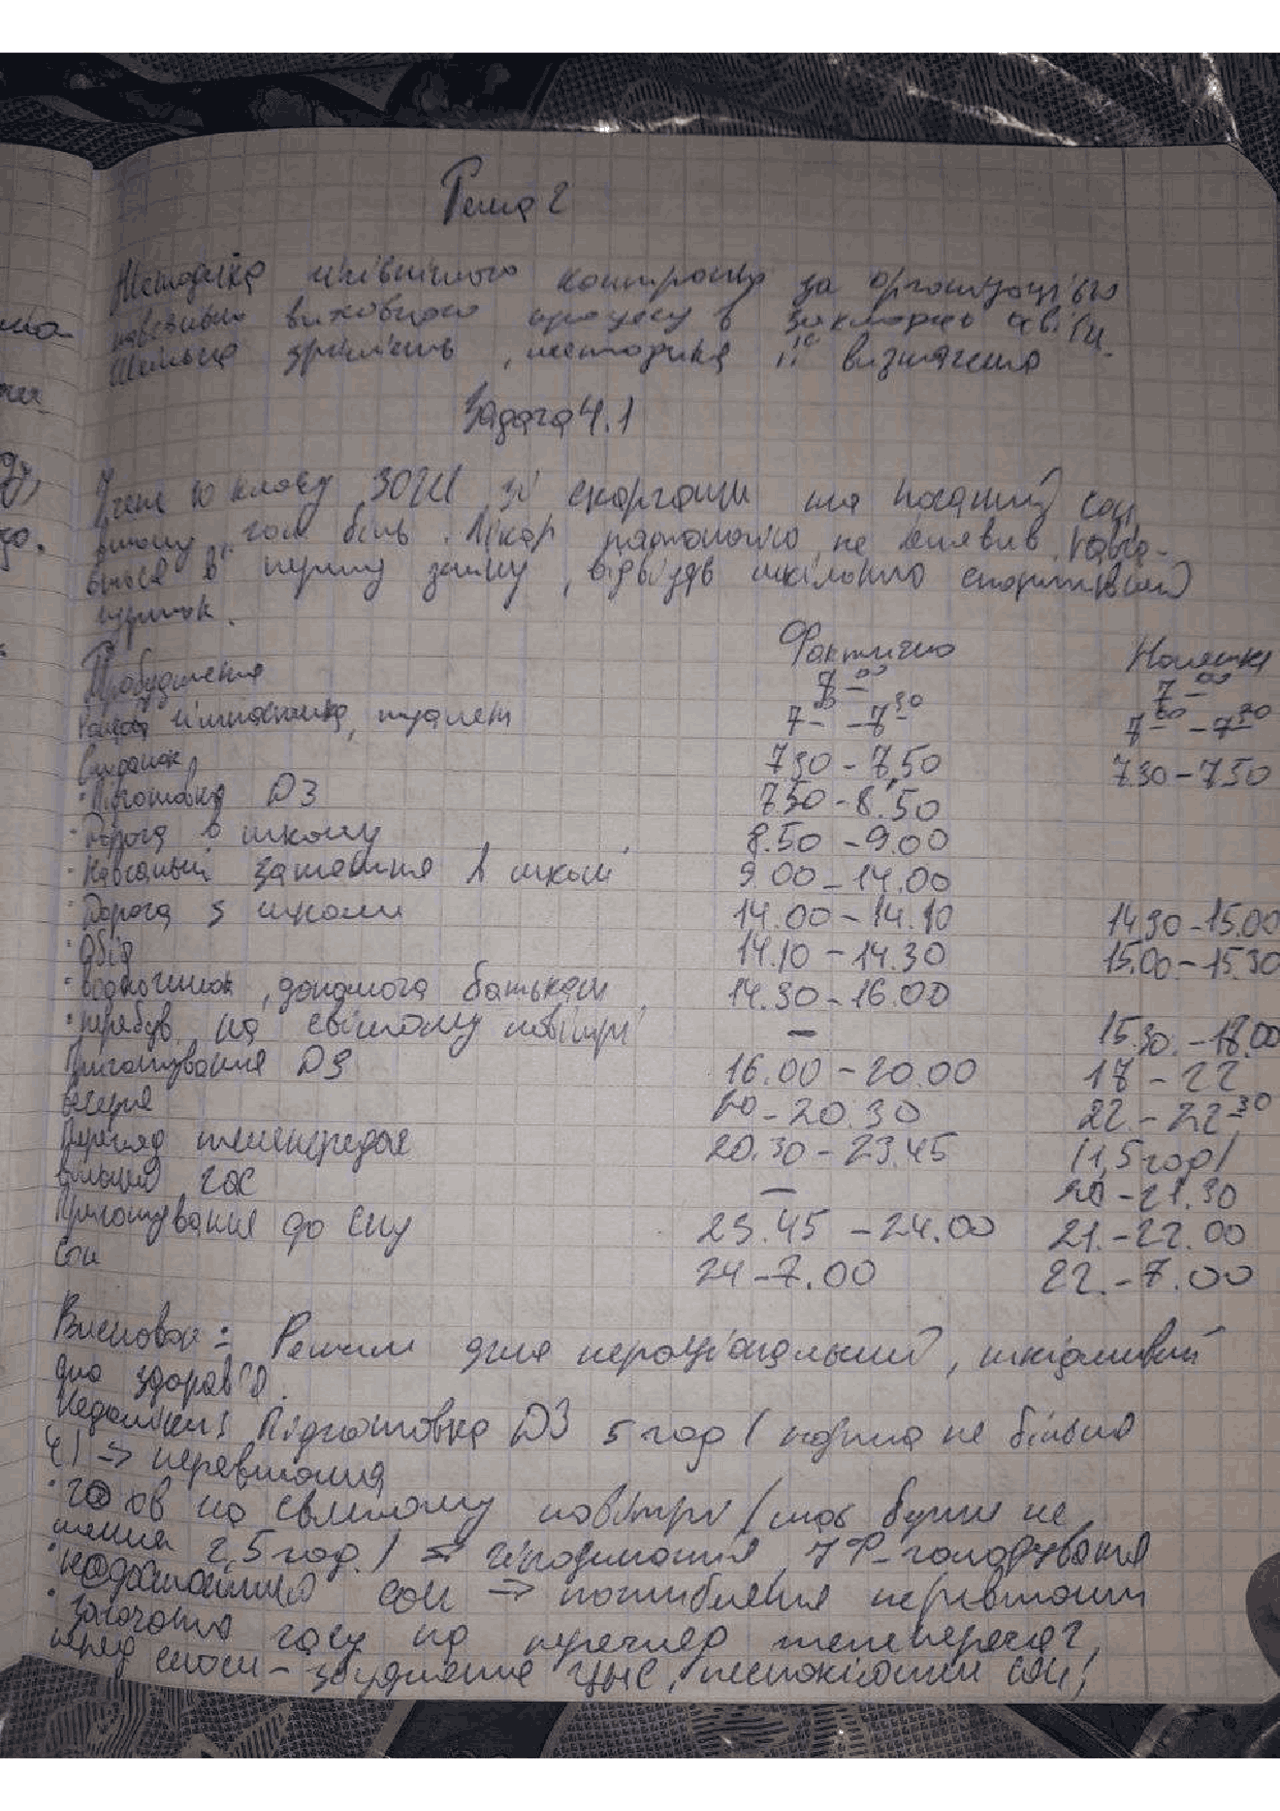 Тема 2
Методика гігієнічного контролю за організацією
навчально виховного процесу в закладах освіти.
Шкільна зрілість, методика її визначення
Задача 4.1
Учень 10 класу ЗОШ зі скаргами на поганий сон,
втому, гол біль. Лікар патологію не виявив. Навча-
ється в першу зміну, відвідує шкільний спортивний
гурток.
Фактично Належне
Пробудження 7 00 7 00
Ранкова гімнастика, туалет 7 00 - 7 30 7 00 - 7 30
Сніданок 730 - 7,50 7.30 - 7 50
· Підготовка ДЗ 7.50 - 8.50
· Дорога в школу 8.50 - 9.00
· Навчальні заняття в школі 9 00 - 14.00
· Дорога з школи 14.00 - 14.10 14 30 - 15.00
· Обід 14.10 - 14.30 15.00 - 15.30
· відпочинок, допомога батькам 14.30 - 16.00
· перебув. на свіжому повітрі — 15.30. - 18.00
Приготування ДЗ 16.00 - 20.00 18 - 22
вечеря 20 - 20.30 22 - 22 30
Перегляд телепередач 20.30 - 23.45 (1,5 год)
вільний час — 20 - 21.30
Приготування до сну 23.45 - 24.00 21. - 22.00
Сон 24 - 7.00 22. - 7.00
Висновок: Режим дня нераціональний, шкідливий
для здоров'я.
Недоліки: Підготовка ДЗ 5 год (норма не більше
4) => перевтома
· на свіжому повітрі (має бути не
менше 2,5 год.) => гіподинамія УФ-голодування
· недостатній сон => поглиблення перевтоми
· часу на перегляд телепередач,
перед сном - збудження ЦНС, неспокійний сон;